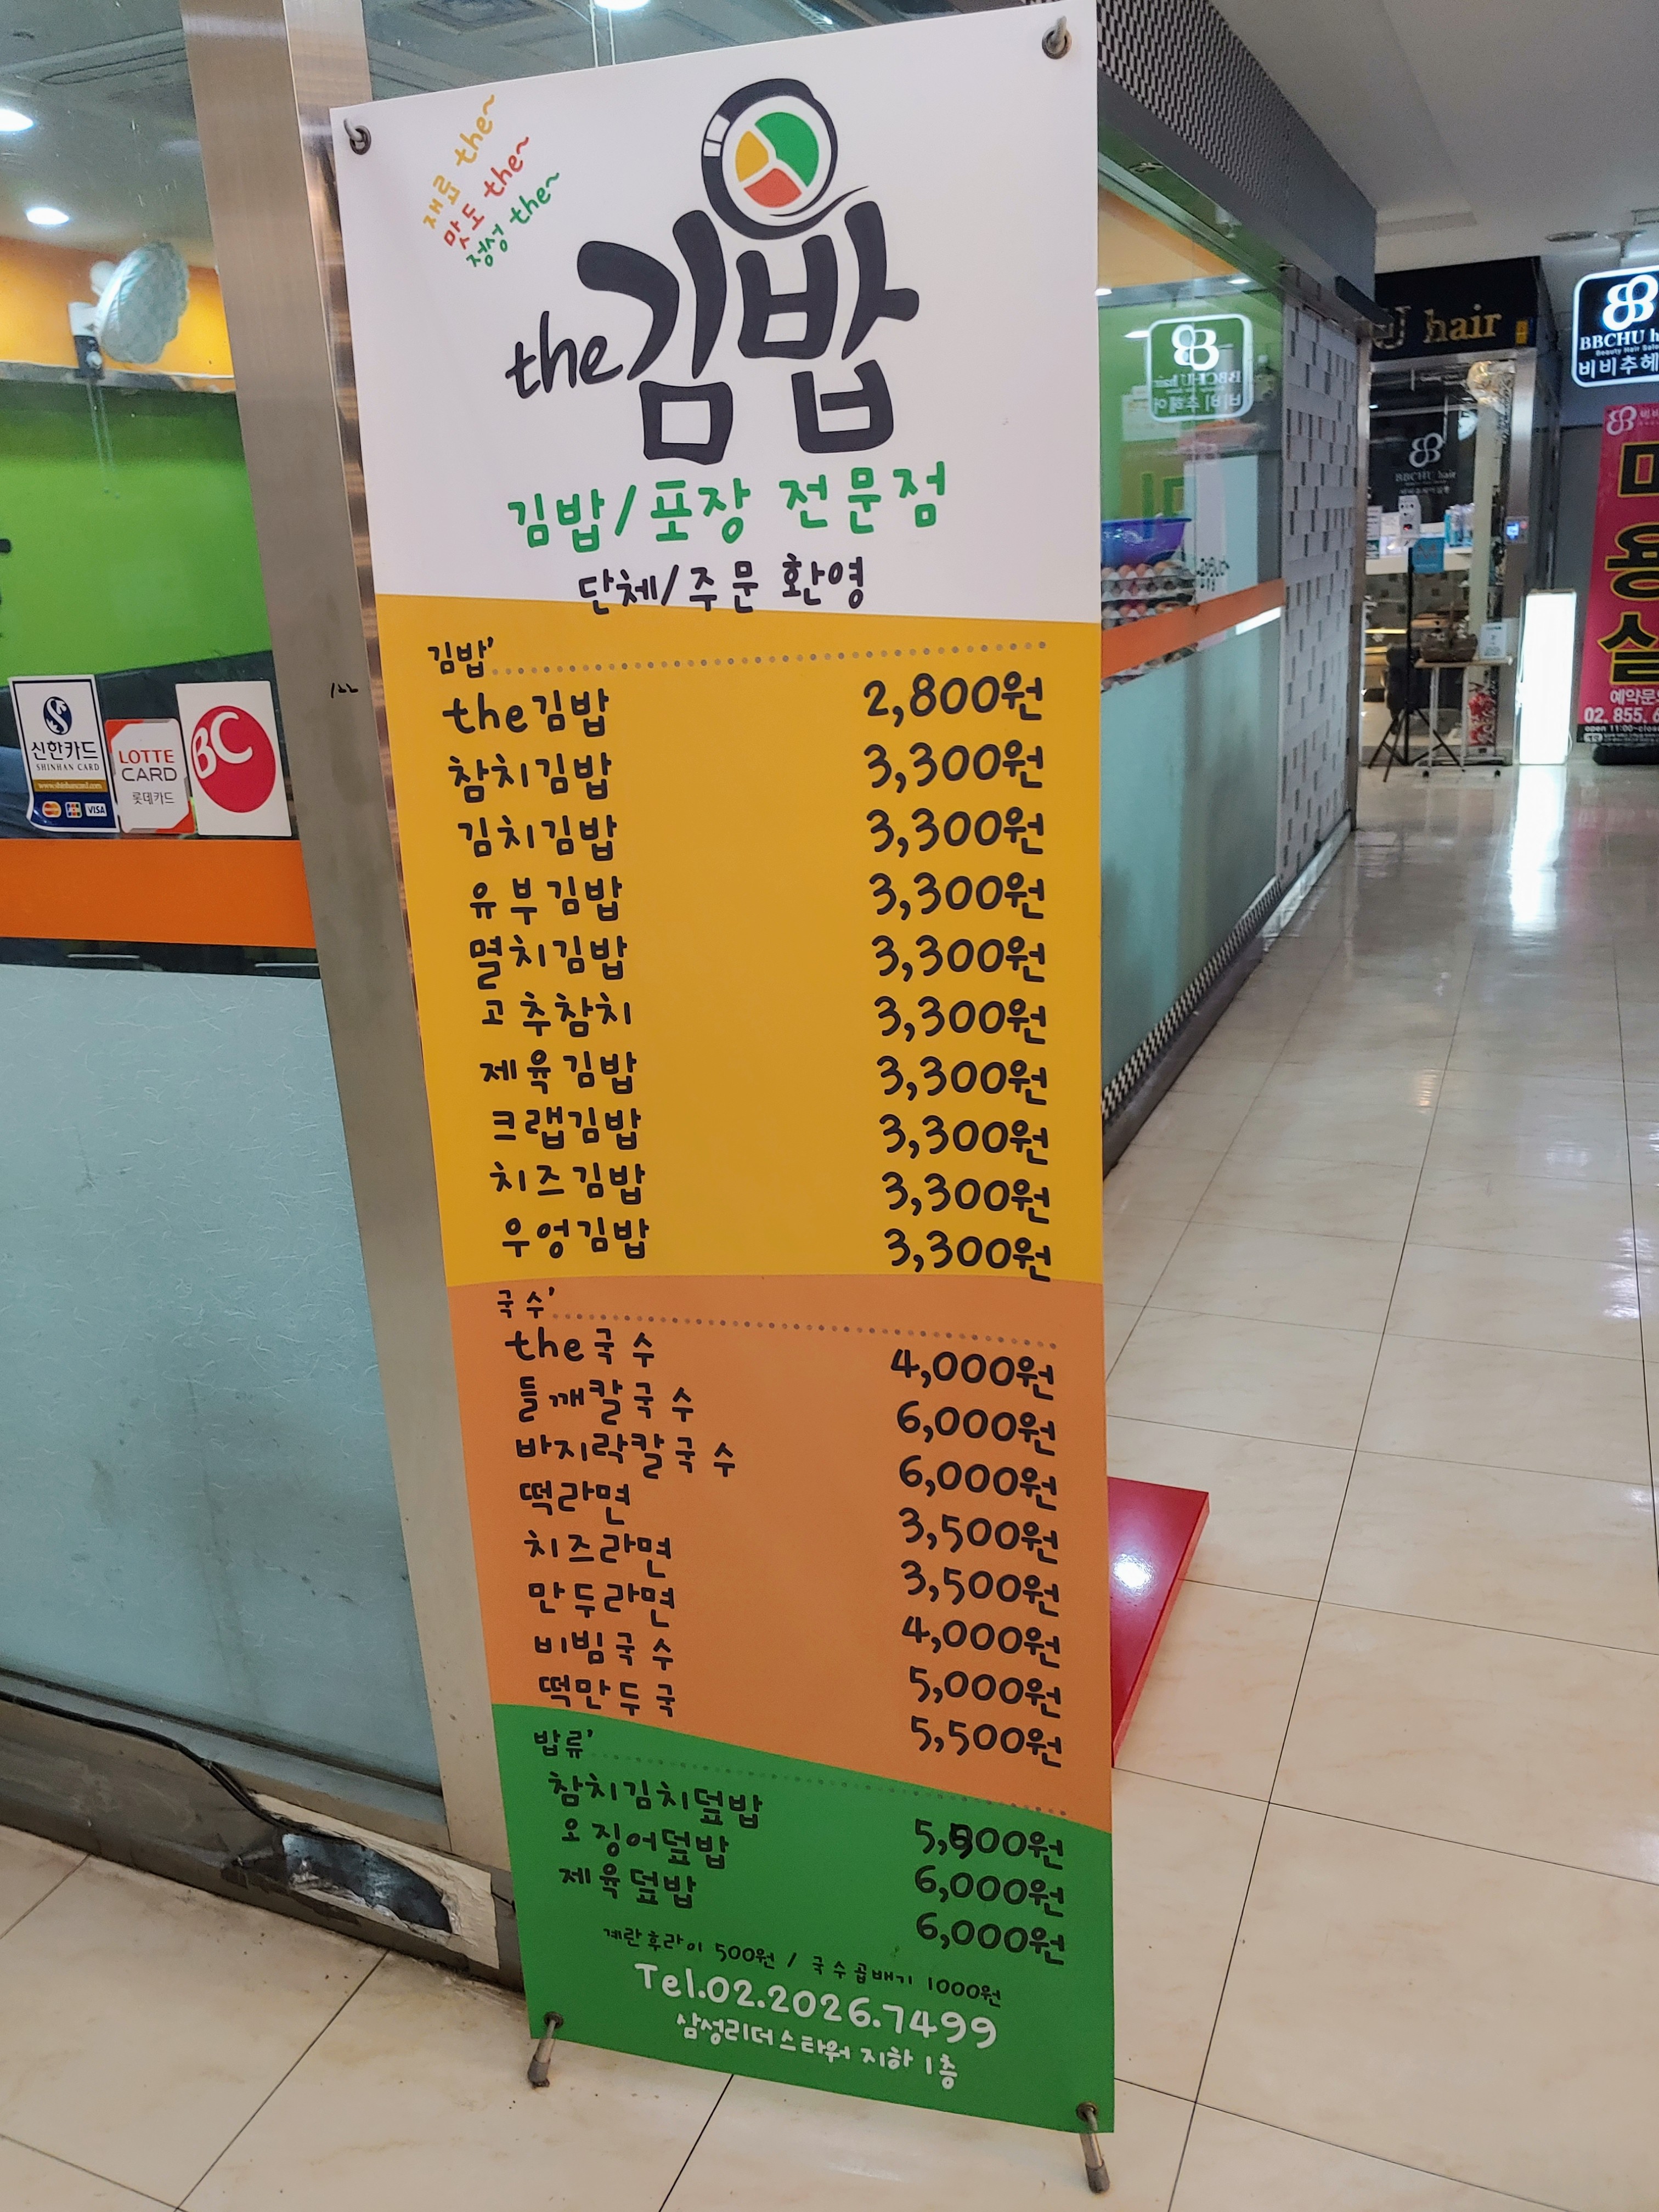 재료 the~
맛도 the~
정성 the~
the김밥
김밥/포장 전문점
단체/주문 환영
김밥'
the김밥 2,800원
참치김밥 3,300원
김치김밥 3,300원
유부김밥 3,300원
멸치김밥 3,300원
고추참치 3,300원
제육김밥 3,300원
크랩김밥 3,300원
치즈김밥 3,300원
우엉김밥 3,300원
국수'
the국수 4,000원
들깨칼국수 6,000원
바지락칼국수 6,000원
떡라면 3,500원
치즈라면 3,500원
만두라면 4,000원
비빔국수 5,000원
떡만두국 5,500원
밥류'
참치김치덮밥 5,500원
오징어덮밥 6,000원
제육덮밥 6,000원
계란후라이 500원 / 국수곱배기 1000원
Tel.02.2026.7499
삼성리더스타워 지하 1층
신한카드
SHINHAN CARD
www.shinhancard.com
VISA
LOTTE
CARD
롯데카드
BC
hair
BBCHU h
Beauty Hair Salo
비비추헤
BBCHU hair
미
용
실
예약문의
02. 855. 6
open 11:00~close